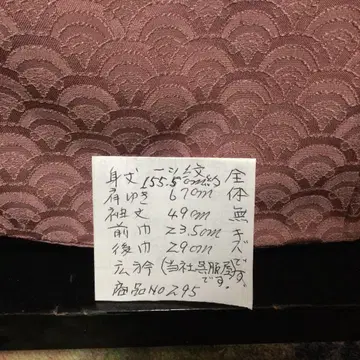 一つ紋
身丈 155.5cm約
肩ゆき 67cm
袖丈 49cm
前巾 23.5cm
後巾 29cm
広衿 (当社呉服屋です。
商品NO 295
全体無キズです。